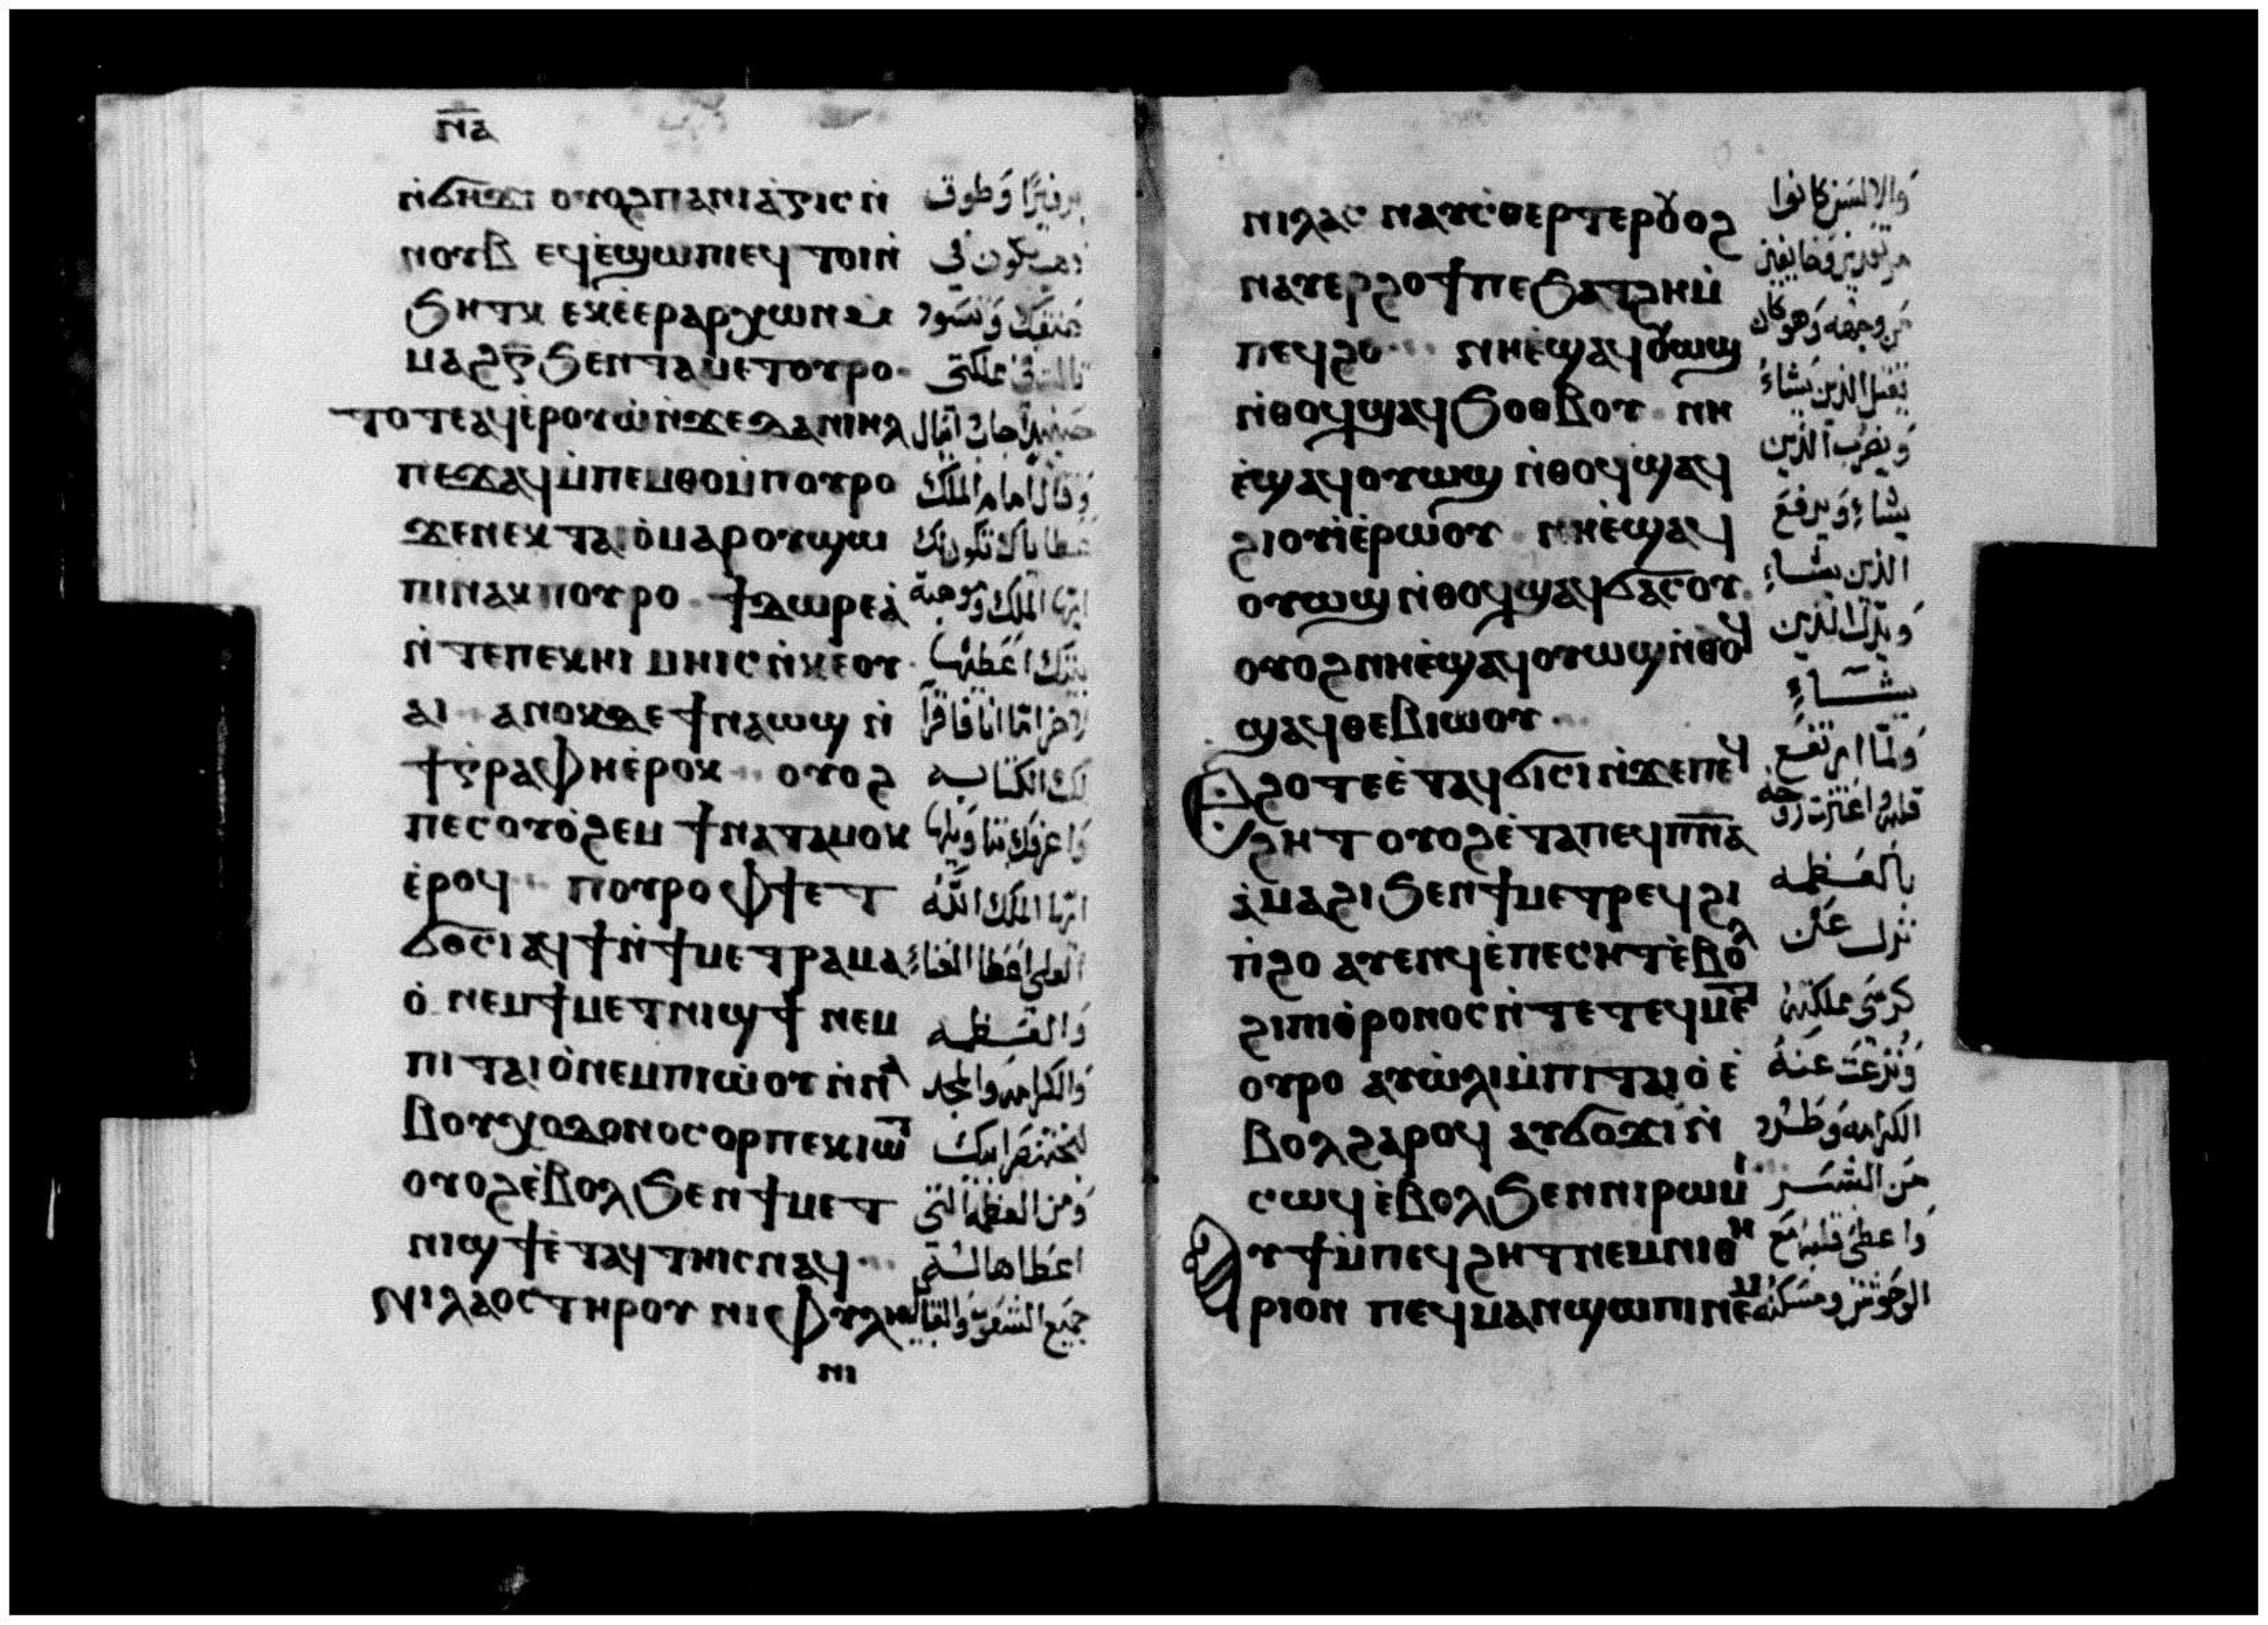 ⲛ̅ⲁ̅
ⲛ̀ϭⲏϫⲓ ⲟⲩⲟϩ ⲡⲁⲛⲓⲁⲝⲓⲥ ⲛ̀ وطوق
ⲛⲟⲩⲃ ⲉϥⲉ̀ϣⲱⲡⲓ ⲉϥⲧⲟⲓ ⲛ̀ يكون في
ϧⲏⲧⲕ ⲉⲕⲉ̀ⲉⲣⲁⲣⲭⲱⲛ عنقك وتسود
ⲙⲁϩⲅ̅ ϧⲉⲛ ⲧⲁⲙⲉⲧⲟⲩⲣⲟ
ⲧⲟⲧⲉ ⲁϥⲉ̀ⲣⲟⲩⲱ̀ ⲛ̀ϫⲉ ⲇⲁⲛⲓⲏⲗ
ⲡⲉϫⲁϥ ⲙ̀ⲡⲉⲙⲑⲟ ⲙ̀ⲡⲟⲩⲣⲟ وقال امام الملك
ϫⲉ ⲛⲉⲕⲧⲁⲓⲟ̀ ⲙⲁⲣⲟⲩϣⲱ عطاياك تكون لك
ⲡⲓ ⲛⲁⲕ ⲡⲟⲩⲣⲟ ϯⲇⲱⲣⲉⲁ̀ ايها الملك وموهبة
ⲛ̀ⲧⲉ ⲡⲉⲕⲏⲓ ⲙⲏⲓⲥ ⲛ̀ⲕⲉⲟⲩ بيتك اعطيها
ⲁⲓ ⲁⲛⲟⲕ ⲇⲉ ϯⲛⲁⲱϣ ⲛ̀ لاخر اما انا فاقرا
ϯⲅ̀ⲣⲁⲫⲏ ⲉ̀ⲣⲟⲕ ⲟⲩⲟϩ لك الكتابه
ⲡⲉⲥⲟⲩⲟ̀ϩⲉⲙ ϯⲛⲁⲧⲁⲙⲟⲕ واعرفك بتاويلها
ⲉ̀ⲣⲟϥ ⲡⲟⲩⲣⲟ ⲫϯ ⲉⲧ ايها الملك الله
ϭⲟⲥⲓ ⲁϥϯ ⲛ̀ϯⲙⲉⲧⲣⲁⲙⲁ العلي اعطا الغناء
ⲟ̀ ⲛⲉⲙ ϯⲙⲉⲧⲛⲓϣϯ ⲛⲉⲙ والعظمه
ⲡⲓⲧⲁⲓⲟ̀ ⲛⲉⲙ ⲡⲓⲱ̀ⲟⲩ ⲛ̀ⲛⲁ والكرامه والمجد
ⲃⲟⲩⲭⲟⲇⲟⲛⲟⲥⲟⲣ ⲡⲉⲕⲓⲱⲧ لبختنصر ابيك
ⲟⲩⲟϩ ⲉ̀ⲃⲟⲗ ϧⲉⲛ ϯⲙⲉⲧ ومن العظمة التي
ⲛⲓϣϯ ⲉ̀ⲧⲁϥⲧⲏⲓⲥ ⲛⲁϥ اعطاها له
ⲛⲓⲗⲁⲟⲥ ⲧⲏⲣⲟⲩ ⲛⲓⲫⲩⲗⲏ جميع الشعوب والقبايل
ⲛⲓ
ⲛⲓⲗⲁⲥ ⲛⲁⲩⲥ̀ⲑⲉⲣⲧⲉⲣ ⲟⲩⲟϩ والالسن كانوا
ⲛⲁⲩⲉⲣϩⲟϯ ⲡⲉ ϧⲁⲧϩⲏ ⲙ̀ مرتعدين وخايفين
ⲡⲉϥϩⲟ ⲛⲏ ⲉ̀ϣⲁϥⲟⲩⲱϣ من وجهه وهو كان
ⲛ̀ⲑⲟϥ ϣⲁϥϧⲟⲑⲃⲟⲩ ⲛⲏ يقتل الذين يشاء
ⲉ̀ϣⲁϥⲟⲩⲱϣ ⲛ̀ⲑⲟϥ ϣⲁϥ ويضرب الذين
ϩⲓⲟⲩⲓ̀ ⲉ̀ⲣⲱⲟⲩ ⲛⲏ ⲉ̀ϣⲁϥ يشاء ويرفع
ⲟⲩⲱϣ ⲛ̀ⲑⲟϥ ϣⲁϥϭⲁⲥⲟⲩ الذين يشاء
ⲟⲩⲟϩ ⲛⲏ ⲉ̀ϣⲁϥⲟⲩⲱϣ ⲛ̀ⲑⲟϥ الذين
ϣⲁϥⲑⲉⲃⲓⲱⲟⲩ يشاء
ⲉϩⲟⲧⲉ ⲉ̀ⲧⲁϥϭⲓⲥⲓ ⲛ̀ϫⲉ ⲡⲉϥ ولما ارتفع
ϩⲏⲧ ⲟⲩⲟϩ ⲉ̀ⲧⲁ ⲡⲉϥⲡ̅ⲛ̅ⲁ̅ قلبه واعتزت روحه
ⲁ̀ⲙⲁϩⲓ ϧⲉⲛ ϯⲙⲉⲧⲣⲉϥϭⲓ بالعظمه
ⲡ̀ϩⲟ ⲁⲩⲉⲛϥ ⲉ̀ⲡⲉⲥⲏⲧ ⲉ̀ⲃⲟⲗ نزل عن
ϩⲓ ⲡⲓⲑ̀ⲣⲟⲛⲟⲥ ⲛ̀ⲧⲉ ⲧⲉϥⲙⲉⲧ كرسي مملكته
ⲟⲩⲣⲟ ⲁⲩⲱ̀ⲗⲓ ⲙ̀ⲡⲓⲧⲁⲓⲟ̀ ⲉ̀ ونزعت عنه
ⲃⲟⲗ ϩⲁⲣⲟϥ ⲁⲩϭⲟϫⲓ ⲛ̀ الكرامه وطرد
ⲥⲱϥ ⲉ̀ⲃⲟⲗ ϧⲉⲛ ⲛⲓⲣⲱⲙⲓ من البشر
ⲁⲩϯ ⲙ̀ⲡⲉϥϩⲏⲧ ⲛⲉⲙ ⲛⲓⲑⲏ واعطى قلبه مع
ⲣⲓⲟⲛ ⲡⲉϥⲙⲁⲛϣⲱⲡⲓ ⲛⲉⲙ الوحوش ومسكنه